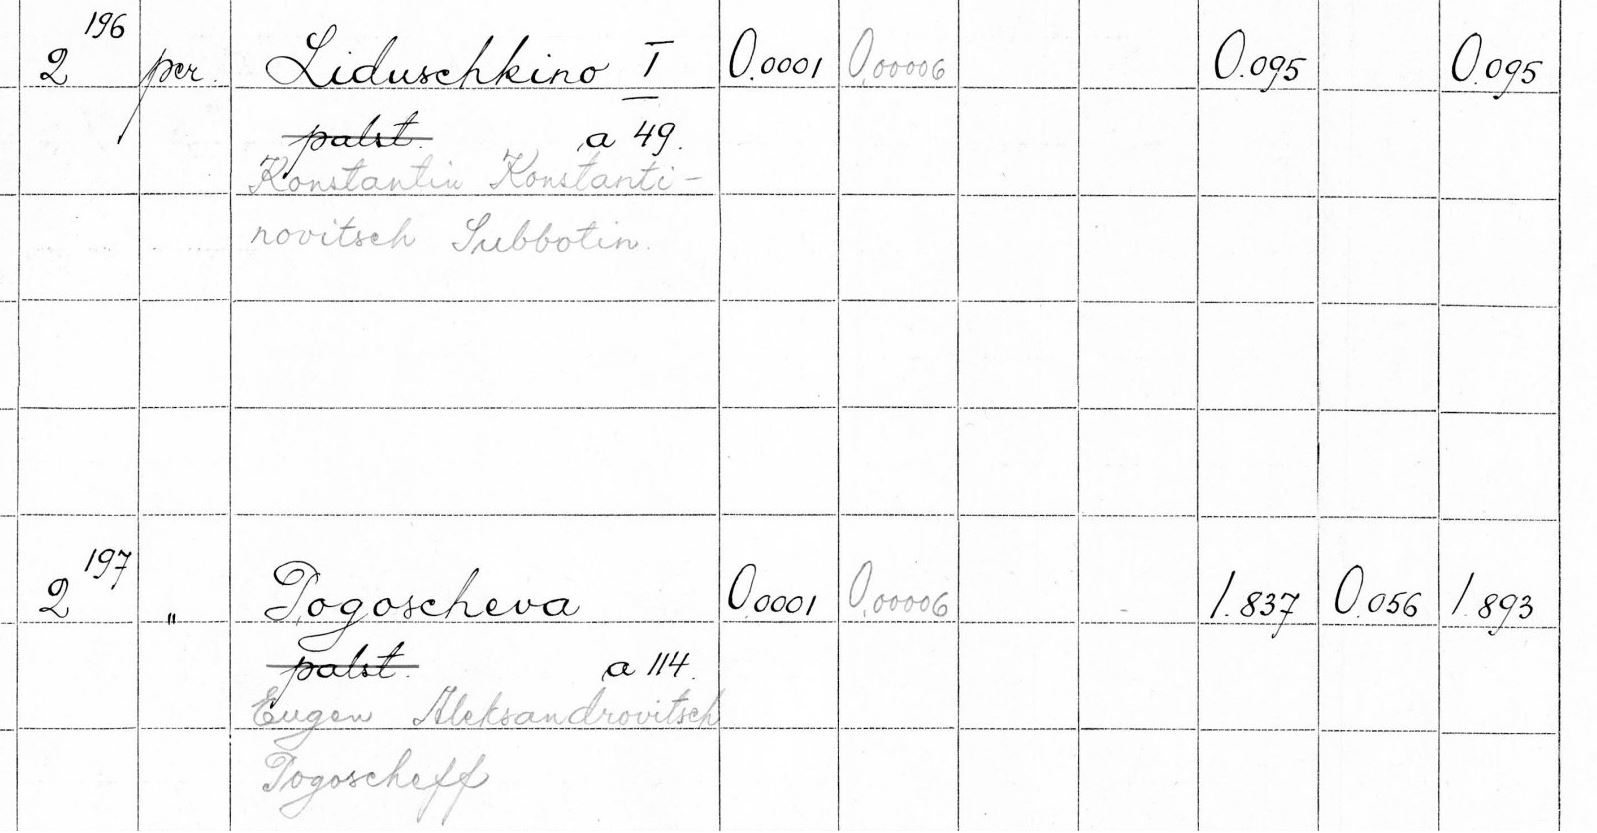 2 196 per. Liduschkino I 0.0001 0.00006 0.095 0.095
palst. a 49.
Konstantin Konstanti-
novitsch Subbotin.
2 197 " Pogoscheva 0.0001 0.00006 1.837 0.056 1.893
palst. a 114.
Eugen Aleksandrovitsch
Pogoscheff